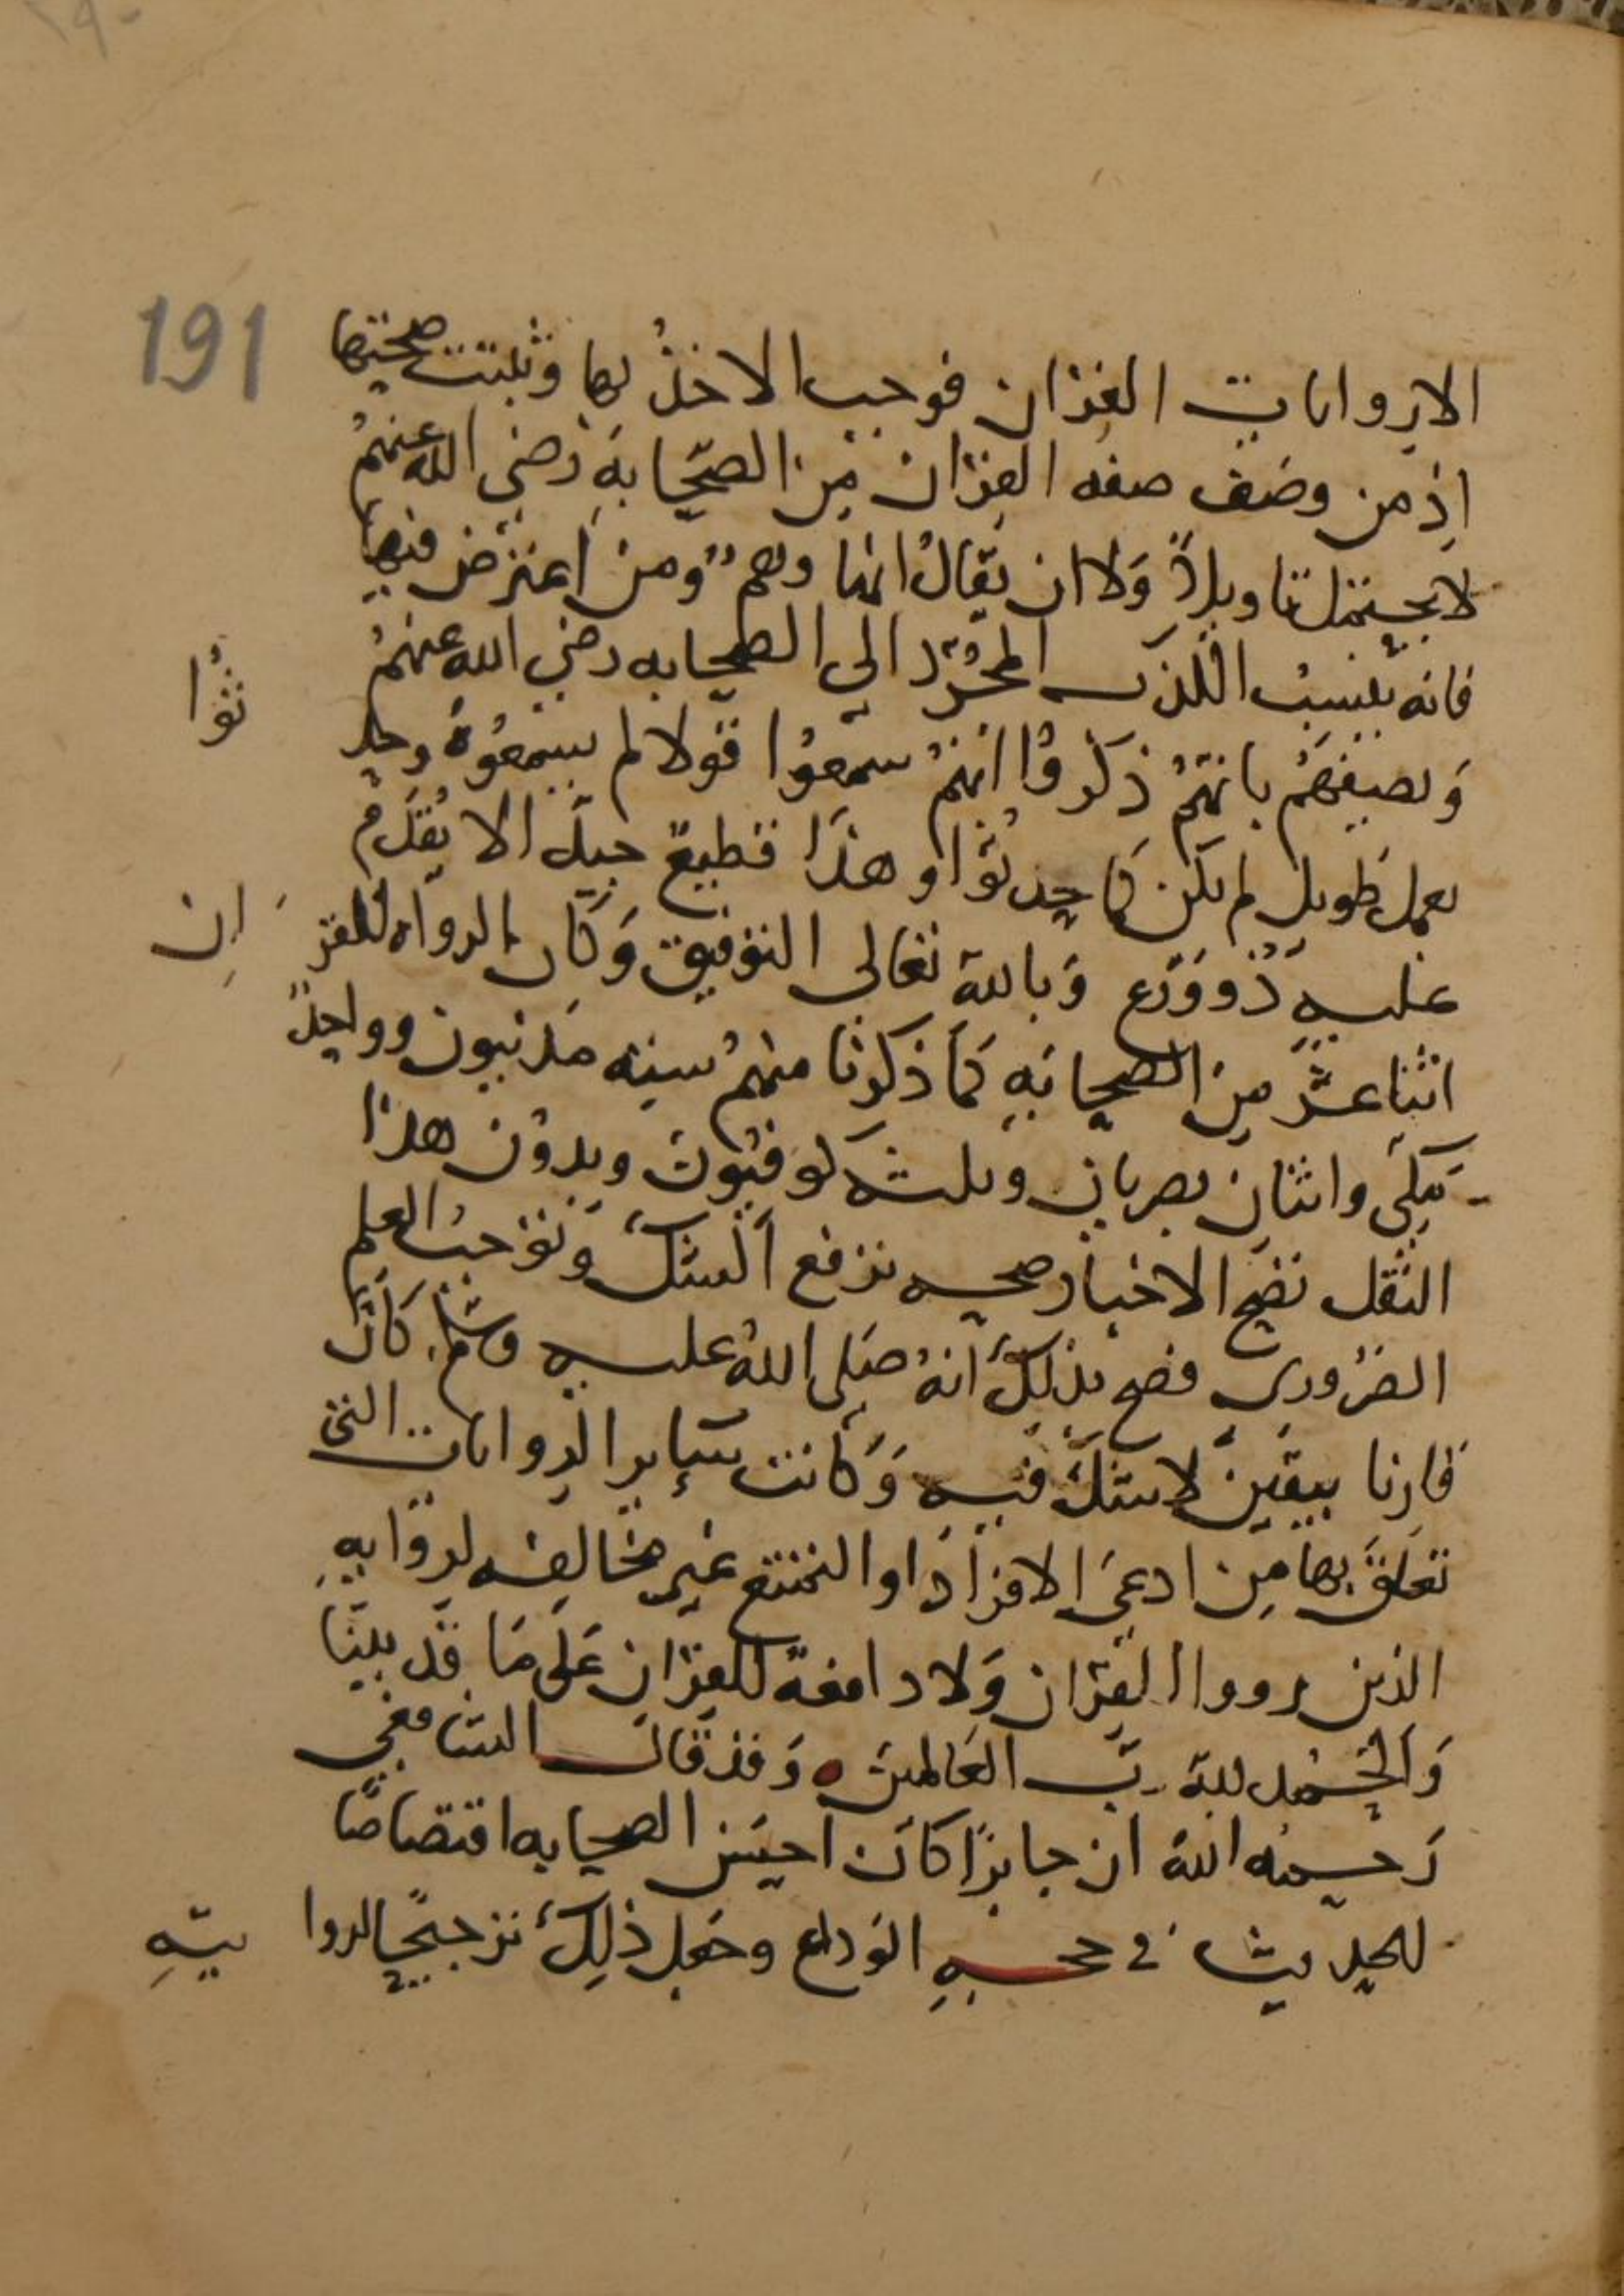 191
الا روايات القران فوجب الاخذ بها وثبتت صحتها
اذ من وصف صفه القران من الصحابه رضي الله عنهم
لا يحتمل تاويلا ولا ان يقال انها وهم ومن اعترض فيها
فانه ينسب الكذب المجرد الى الصحابه رضي الله عنهم
ويصفهم بانهم ذكروا انهم سمعوا قولا لم يسمعوه وحد ثوا
بعمل طويل لم يكن كما حدثوا وهذا فظيع جدا لا يقدم
عليه ذو ورع وبالله تعالى التوفيق وكان الرواه للقر ان
اثنا عشر من الصحابه كما ذكرنا منهم سته مدنيون وواحد
مكي واثنان بصريان وثلثه كوفيون وبدون هذا
النقل تصح الاخبار صحه ترفع الشك وتوجب العلم
الضروري فصح بذلك انه صلى الله عليه وسلم كان
قارنا بيقين لا شك فيه وكانت ساير الروايات التي
تعلق بها من ادعى الافراد او التمتع غير مخالفه لروايه
الذين رووا القران ولا دافعة للقران على ما قد بينا
والحمد لله رب العالمين ٥ وقد قال الشافعي
رحمه الله ان جابرا كان احسن الصحابه اقتصاصا
للحديث في حجه الوداع وجعل ذلك ترجيحا لروا يته